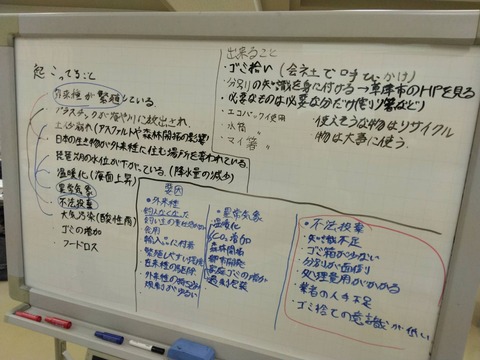 起こってること
外来種が繁殖している。
プラスチックが海や川に放出され、
土砂崩れ(アスファルトや森林開拓の影響)
日本の生き物が外来種に住む場所を奪われている。
琵琶湖の水位が下がっている。(降水量の減少)
温暖化(海面上昇)
異常気象
不法投棄
大気汚染(酸性雨)
ゴミの増加
フードロス
出来ること
・ゴミ拾い(会社で呼びかけ)
・分別の知識を身に付ける→草津市のHPを見る
・必要なものは必要な分だけ(割り箸など)
・エコバック使用
・水筒 〃
・マイ箸 〃
使えそうな物はリサイクル
物は大事に使う。
要因
・外来種
飼えなくなった
食用
輸入
繁殖しやすい環境
在来種の駆除
外来種の持ち込み
規制がゆるい
・異常気象
温暖化
CO₂増加
森林開拓
都市開発
家庭ゴミの増加
過剰包装
・不法投棄
・知識不足
・ゴミ箱が少ない
・分別が面倒
・処理費用がかかる
・業者の人手不足
・ゴミ捨ての意識が低い